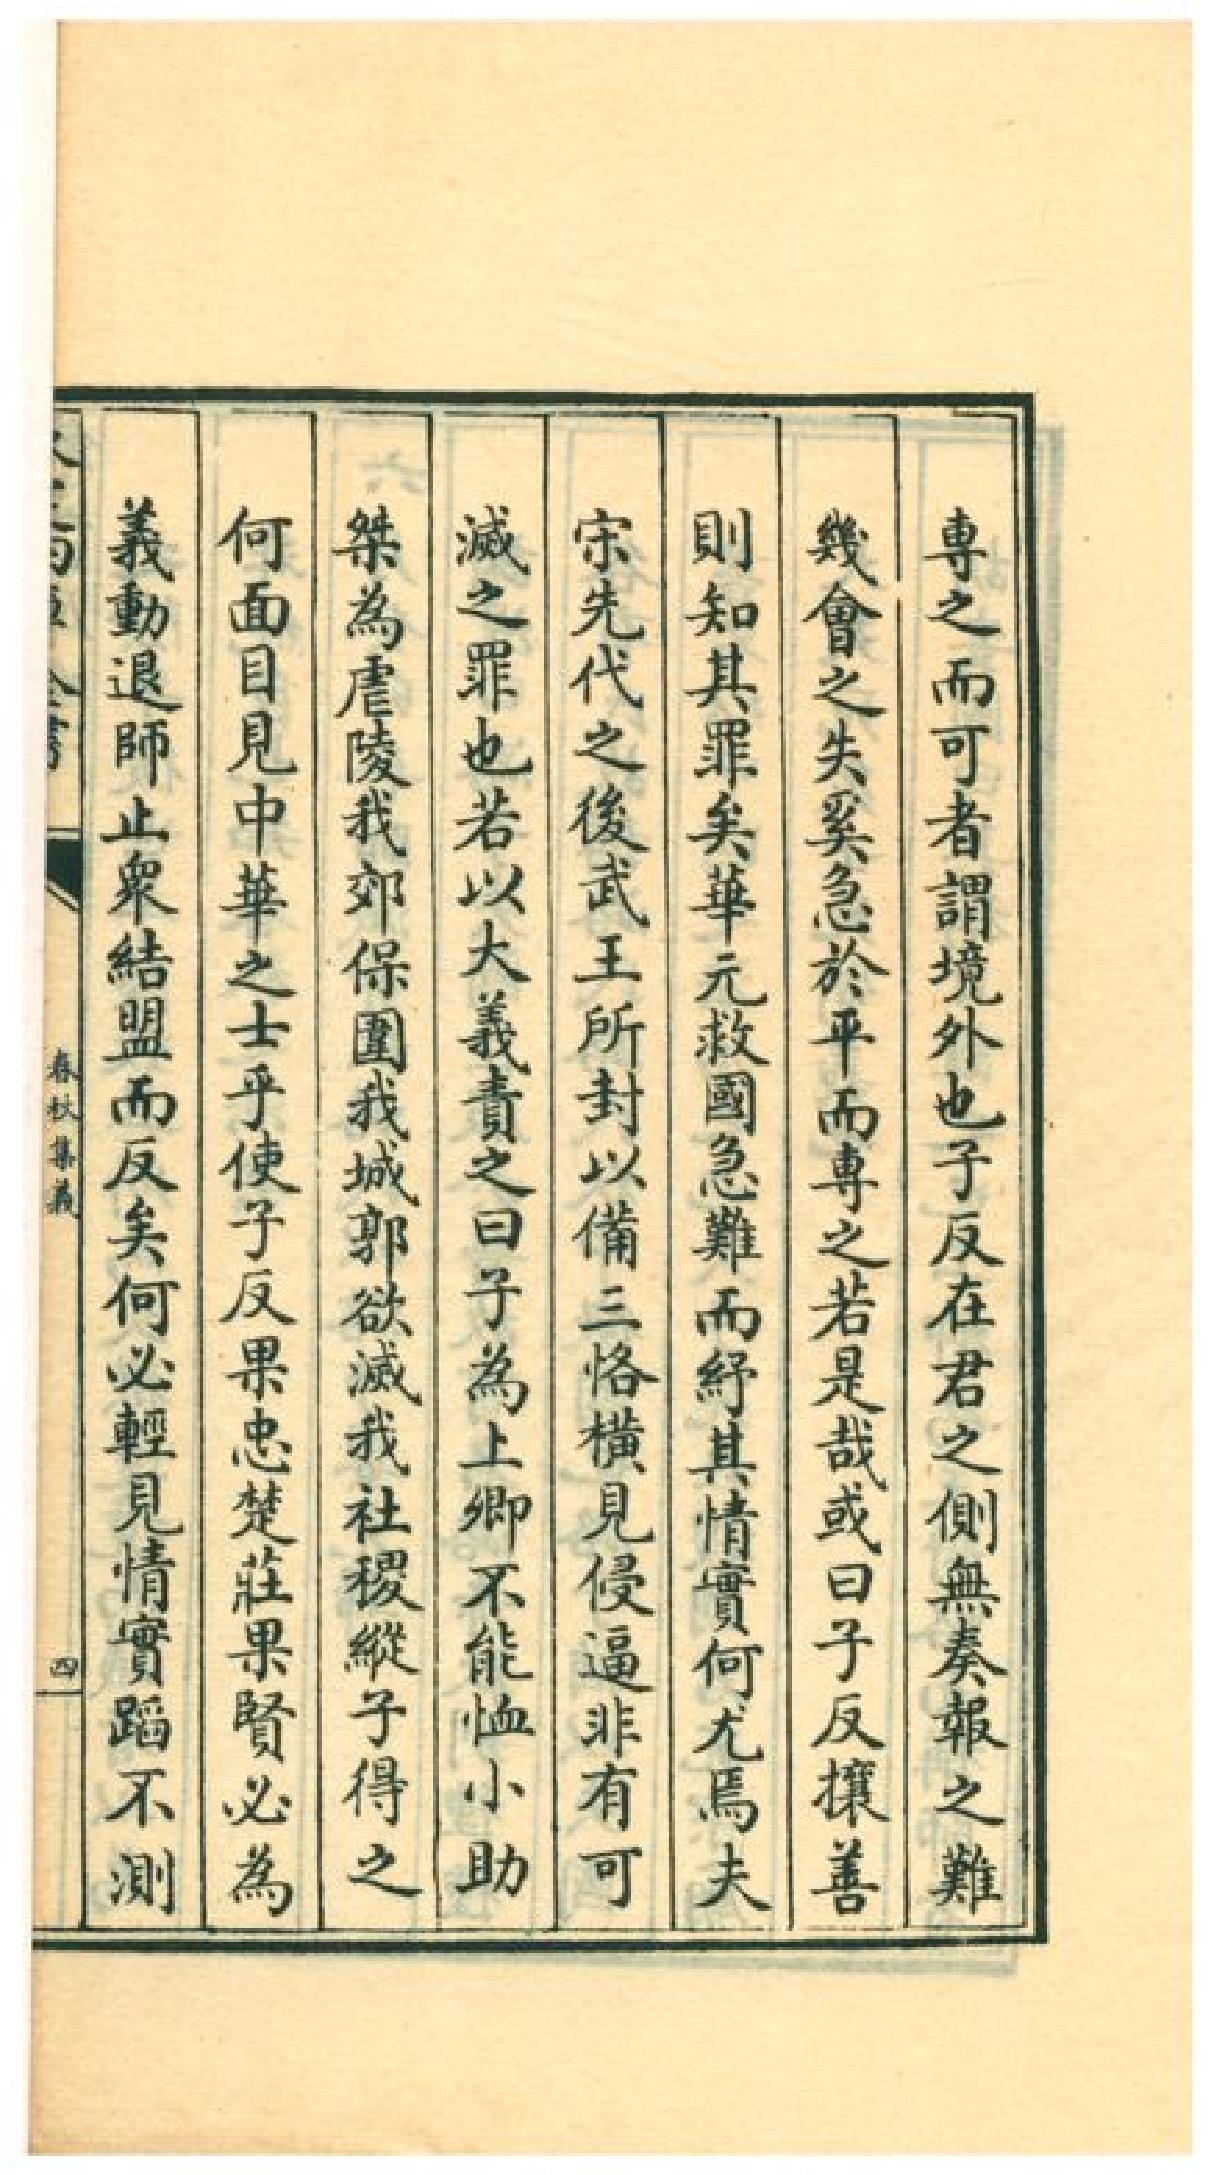 專之而可者謂境外也子反在君之側無奏報之難
幾會之失奚急於平而專之若是哉或曰子反攘善
則知其罪矣華元救國急難而紓其情實何尤焉夫
宋先代之後武王所封以備三恪橫見侵逼非有可
滅之罪也若以大義責之曰子為上卿不能恤小助
桀為虐陵我郊保圍我城郭欲滅我社稷縱子得之
何面目見中華之士乎使子反果忠楚莊果賢必為
義動退師止衆結盟而反矣何必輕見情實蹈不測
春秋集義
四